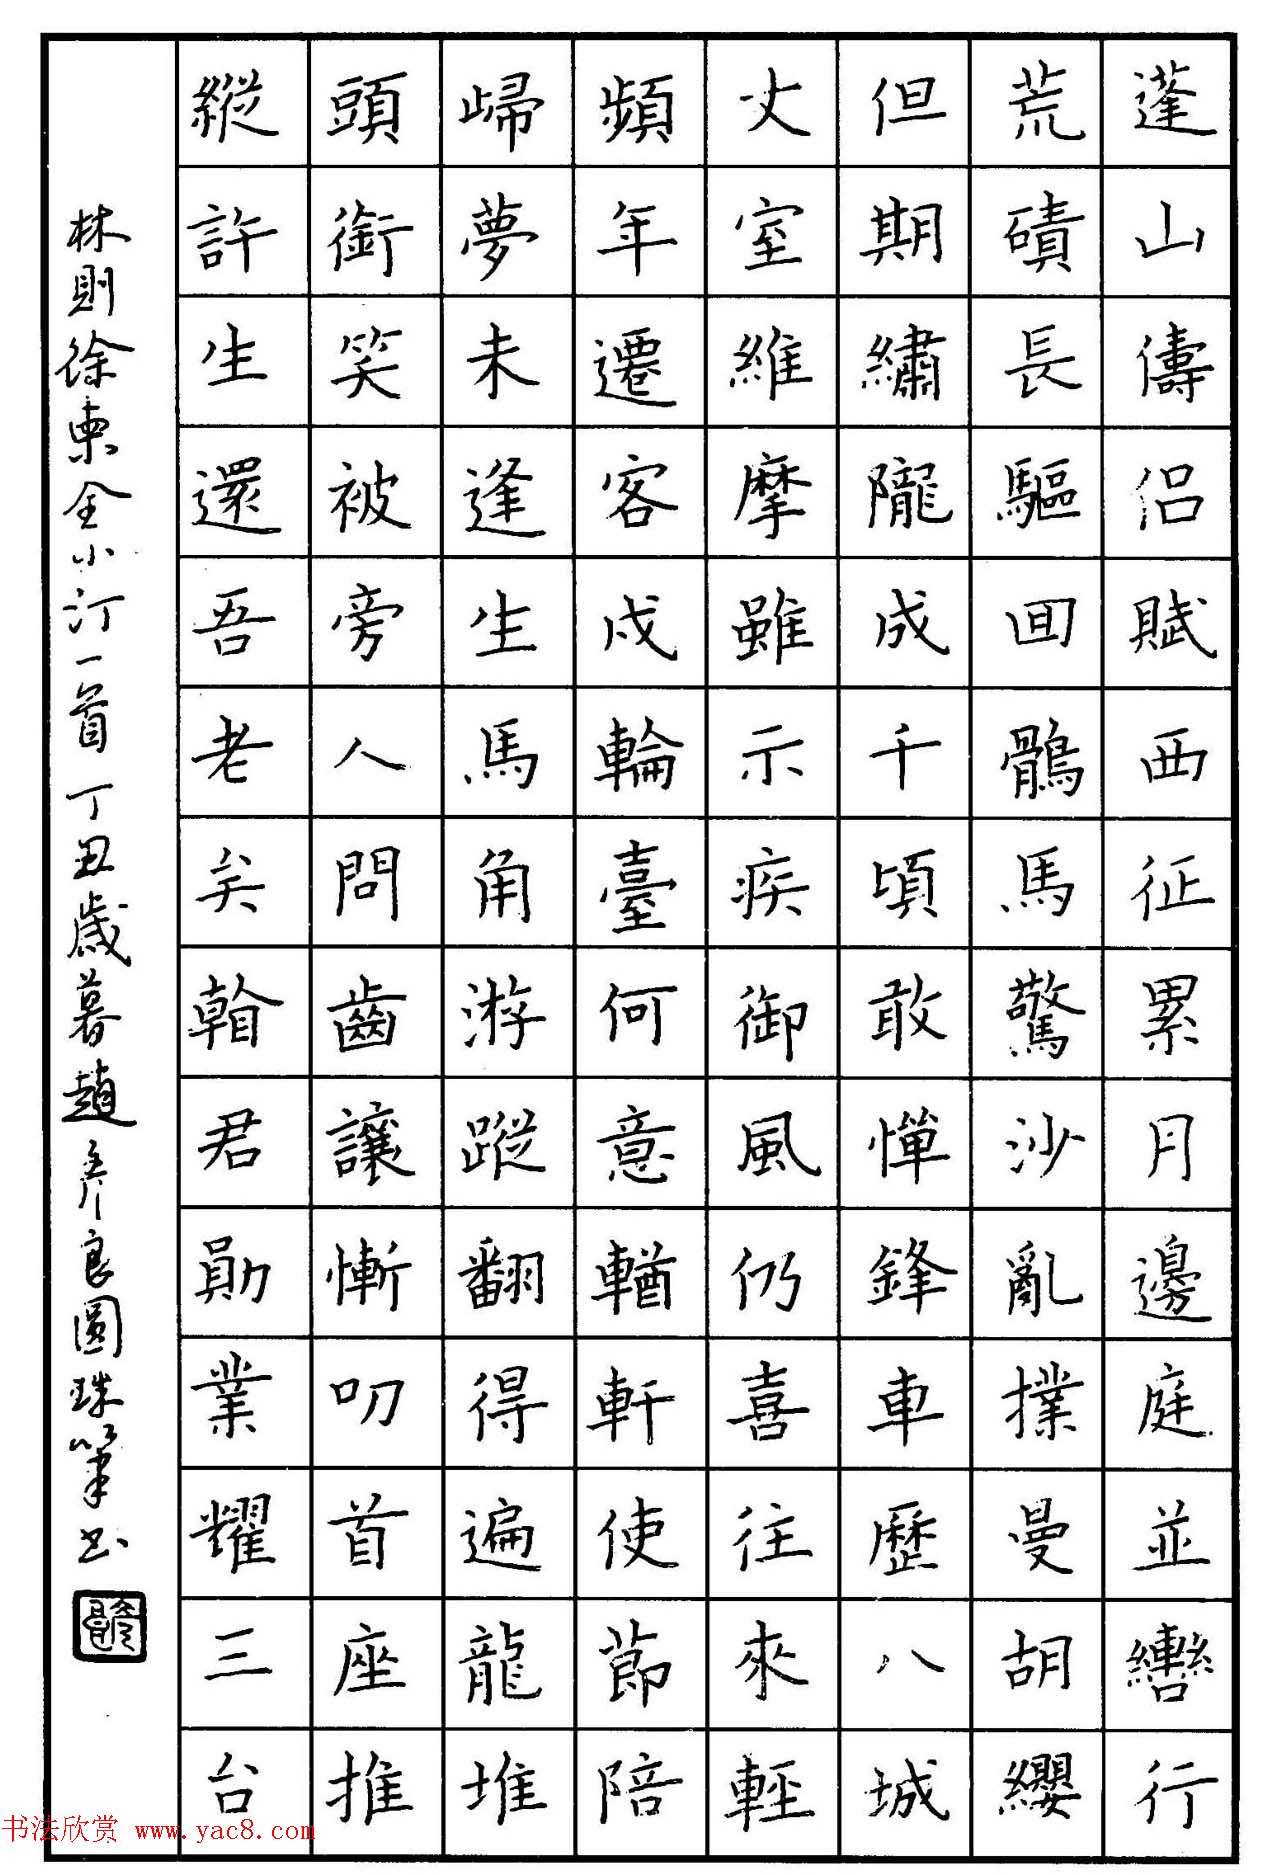 蓬山儔侶賦西征累月邊庭並轡行
荒磧長驅回鶻馬驚沙亂撲曼胡纓
但期繡隴成千頃敢憚鋒車歷八城
丈室維摩雖示疾御風仍喜往來輕
頻年遷客戍輪臺何意輶軒使節陪
歸夢未逢生馬角游蹤翻得遍龍堆
頭銜笑被旁人問齒讓慚叨首座推
縱許生還吾老矣韓君勛業耀三台
林則徐柬全小汀一首丁丑歲暮趙彥良圓珠筆书
书法欣赏 www.yac8.com